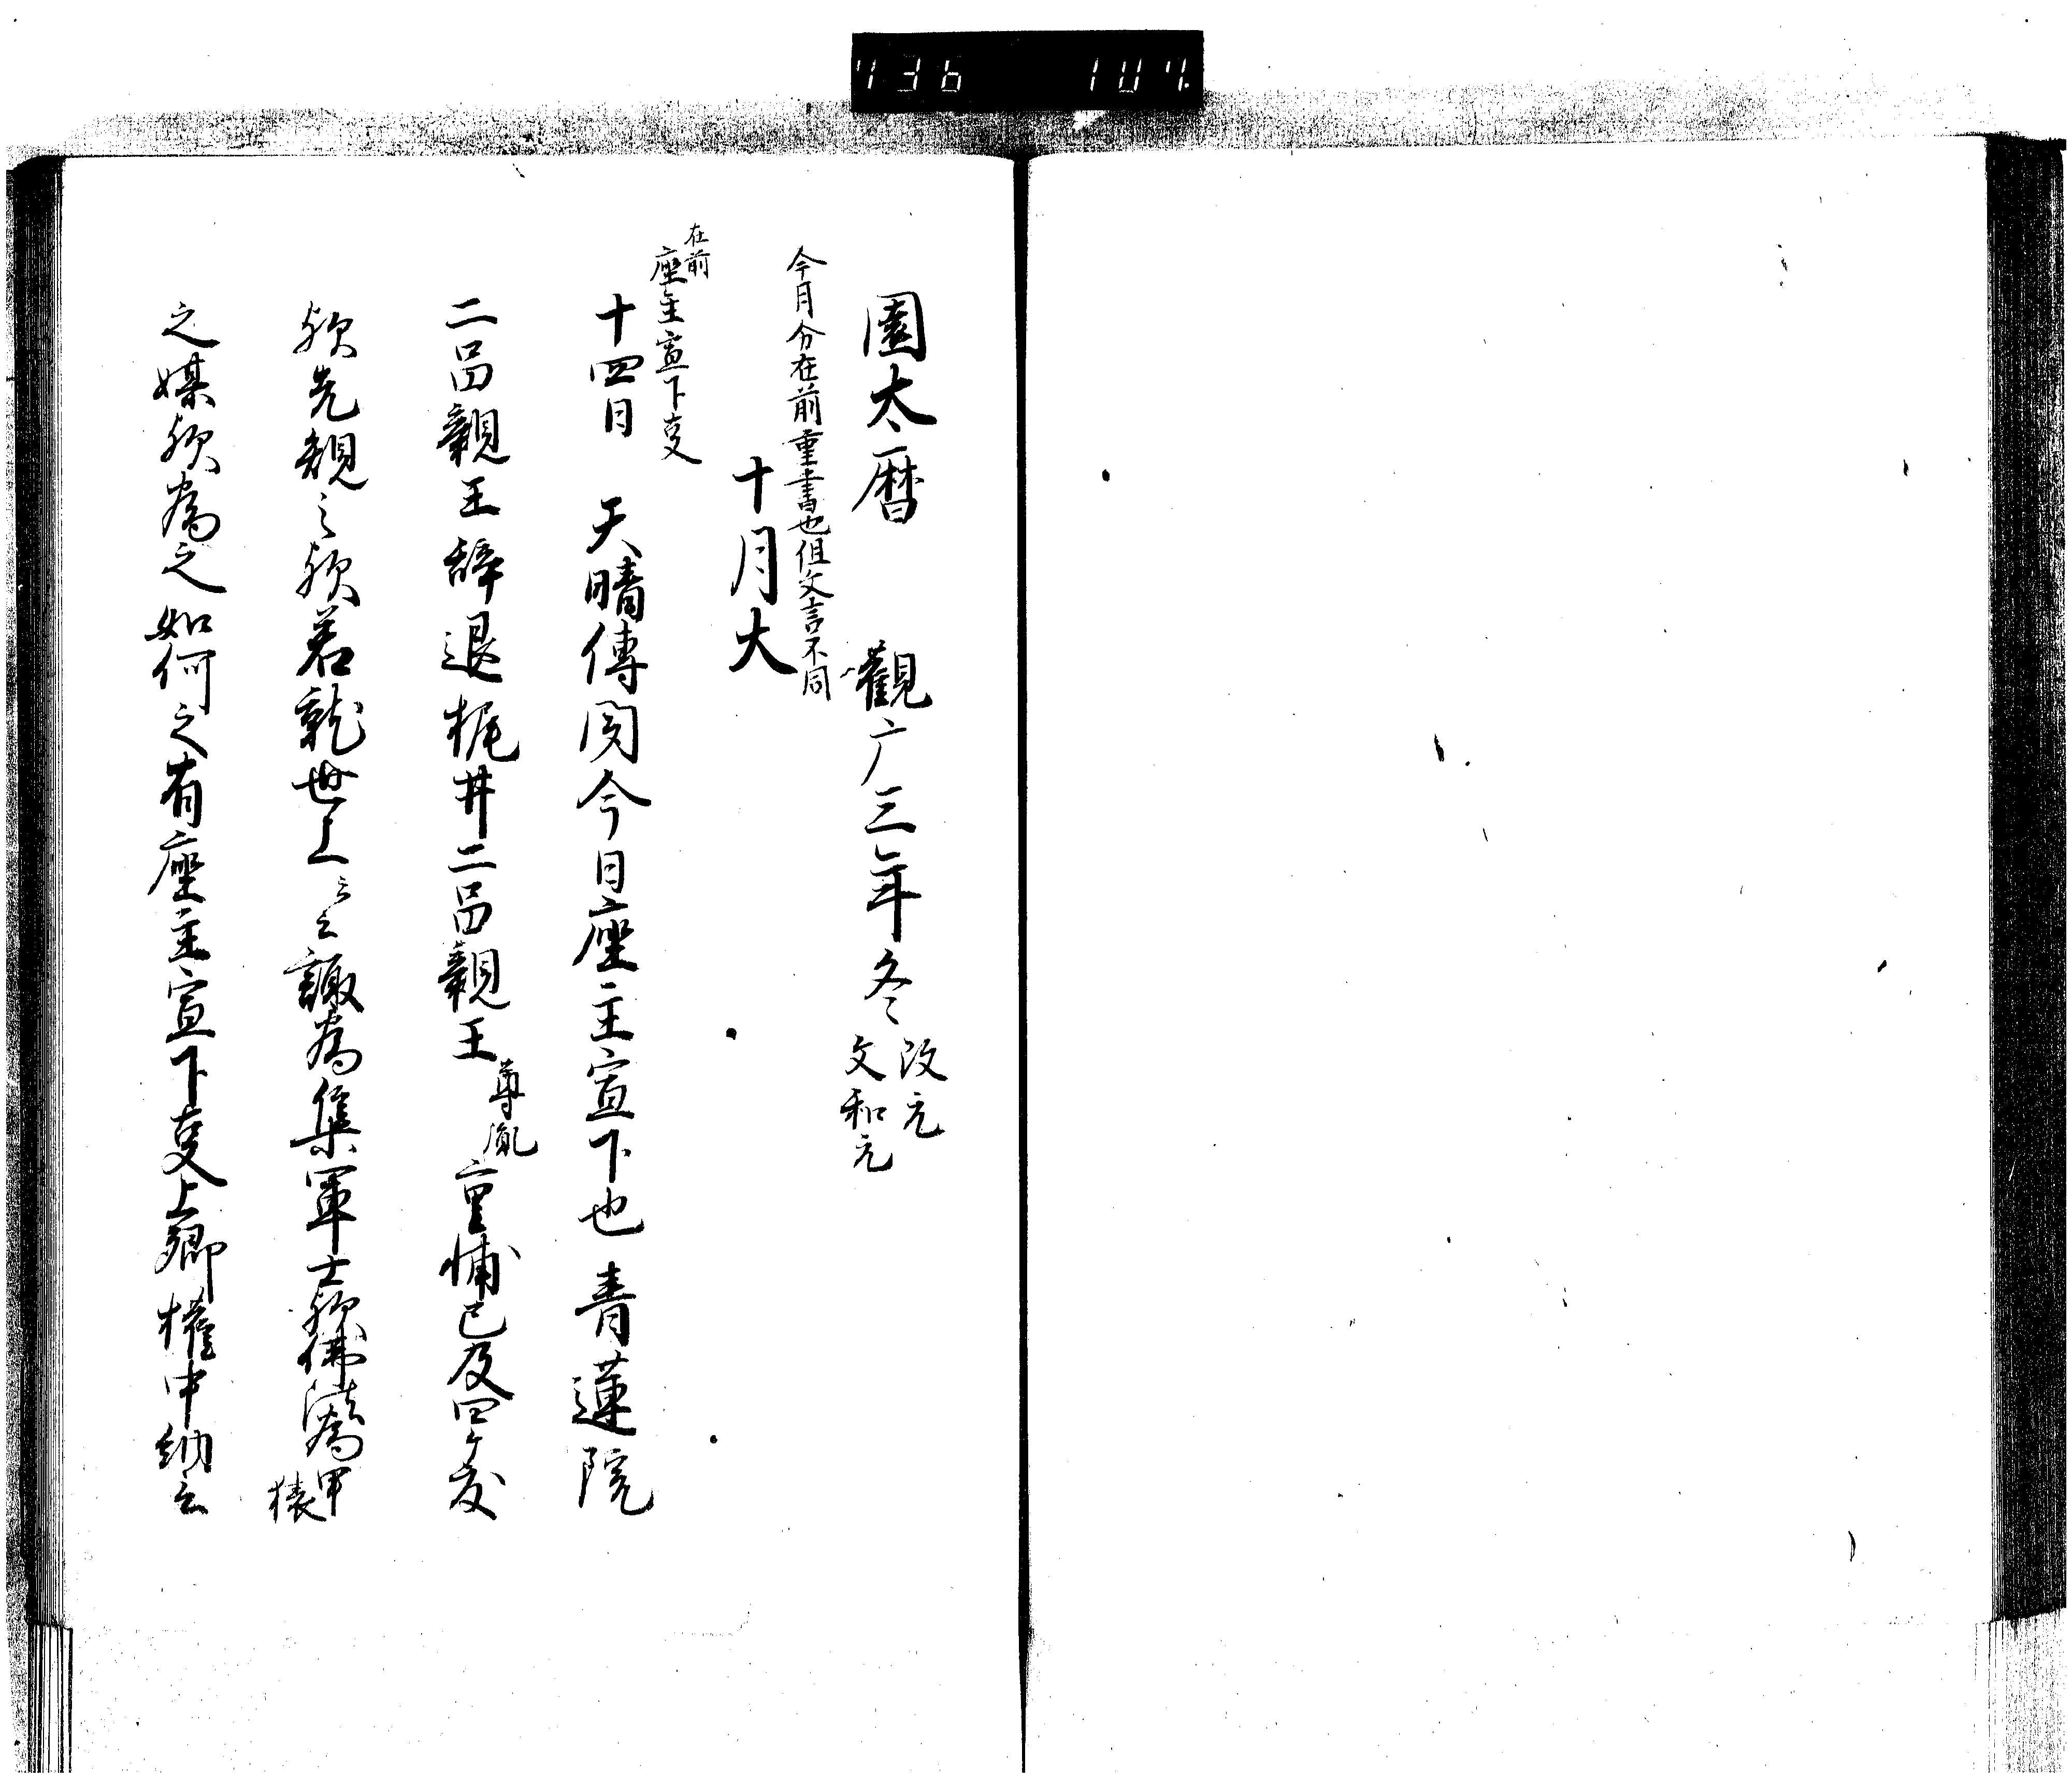 736 107
園太暦 觀广三年冬 改元文和元
今月分在前重書也但文言不同
十月大
在前
座主宣下叓
十四日 天晴傳聞今日座主宣下也青蓮院
二品親王辞退梶井二品親王尊胤重補已及四ケ度
欤先規之欤若乱世上之云諏為集軍士欤佛法為甲猿
之媒欤為之如何之有座主宣下叓上卿権中納言